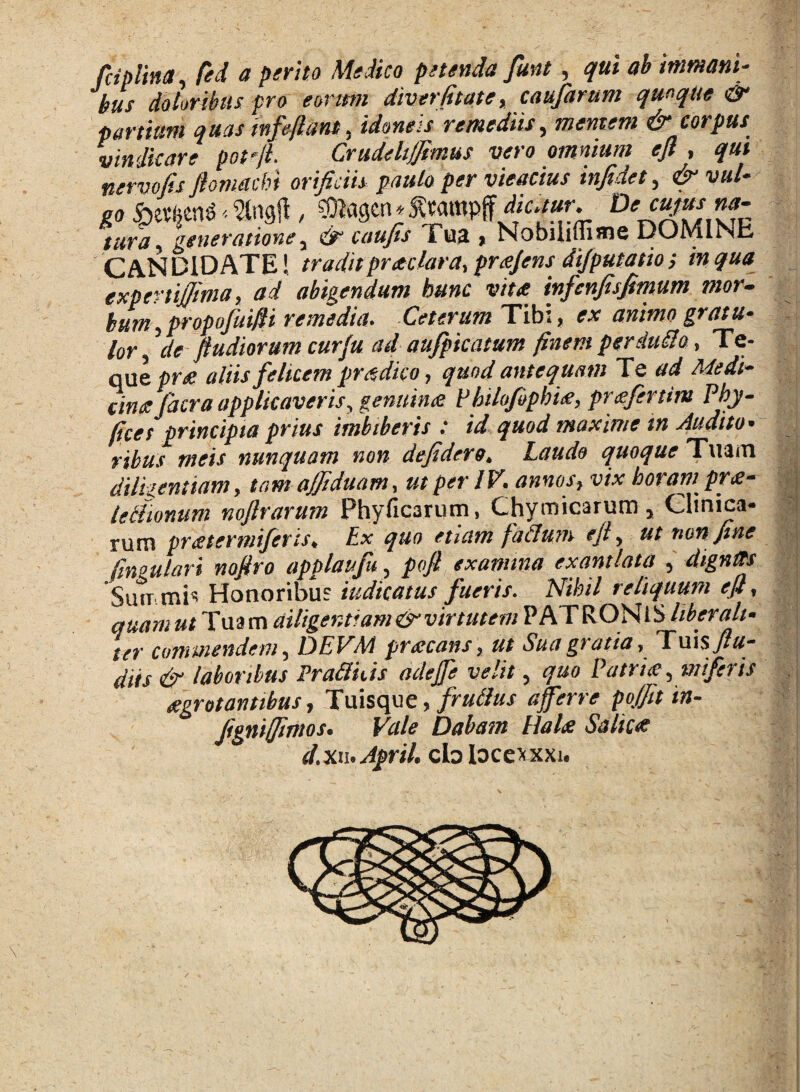 ſciplina, ſed a perito Medico petenda ſunt, qui ab immani-
bus doloribus pro eorum diverſitate, cauſarum quoque &
partium quas infeſtant, idoneis remediis, mentem & corpus
vindicare poteſt. Crudeliſſimus vero omnium eſt, qui
nervoſis ſtomachi orificiis paulo per vieacius inſidet, & vul-
go Hertzens-Angſt, Magen-Krampff dicatur. De cujus na-
tura, generatione, & cauſis Tua, Nobiliſſime DOMINE
CANDIDATE! tradit præclara, præſens diſputatio; in qua
expertiſſima, ad abigendum hunc vitæ infenſisſimum mor-
bum, propoſuiſti remedia. Ceterum Tibi, ex animo gratu-
lor, de ſtudiorum curſu ad auſpicatum finem perducto, Te-
que præ aliis felicem prædico, quod antequam Te ad Medi-
cinæ ſacra applicaveris, genuinæ Philoſophiæ, præſertim Phy-
ſices principia prius imbiberis : id quod maxime in Audito-
ribus meis nunquam non deſidero. Laudo quoque Tuam
diligentiam, tam aſſiduam, ut per IV. annos, vix horam præ-
lectionum noſtrarum Phyſicarum, Chymicarum, Clinica-
rum prætermiſeris. Ex quo etiam factum eſt, ut non ſine
ſingulari noſtro applauſu, poſt examina exantlata, dignus
Summis Honoribus iudicatus fueris. Nihil reliquum eſt,
quam ut Tuam diligentiam & virtutem PATRONIS liberali-
ter commendem, DEVM præcans, ut Sua gratia, Tuis ſtu-
diis & laboribus Practicis adeſſe velit, quo Patriæ, miſeris
ægrotantibus, Tuisque, fructus afferre poſſit in-
ſigniſſimos. Vale Dabam Halæ Salicæ
d. XII. April. cIɔ Iɔccxxxi.